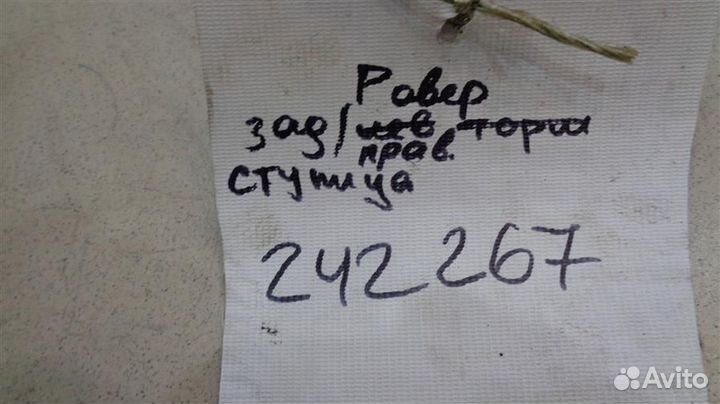 Ровер
зад/лев торм
прав.
ступица
242267
Avito